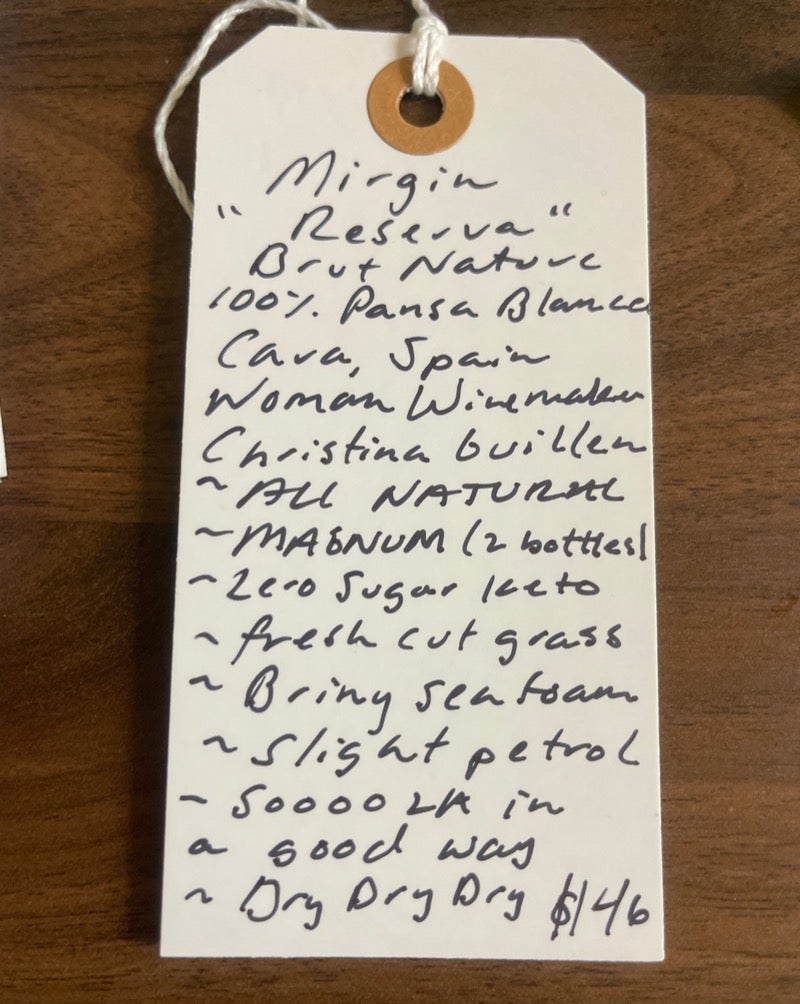 Mirgin
"Reserva"
Brut Nature
100% Pansa Blanca
Cava, Spain
Woman Winemaker
Christina Guillen
~ALL NATURAL
~MAGNUM (2 bottles)
~Zero Sugar keto
~fresh cut grass
~Briny sea foam
~Slight petrol
~SOOOO LA in
a good way
~Dry Dry Dry $146